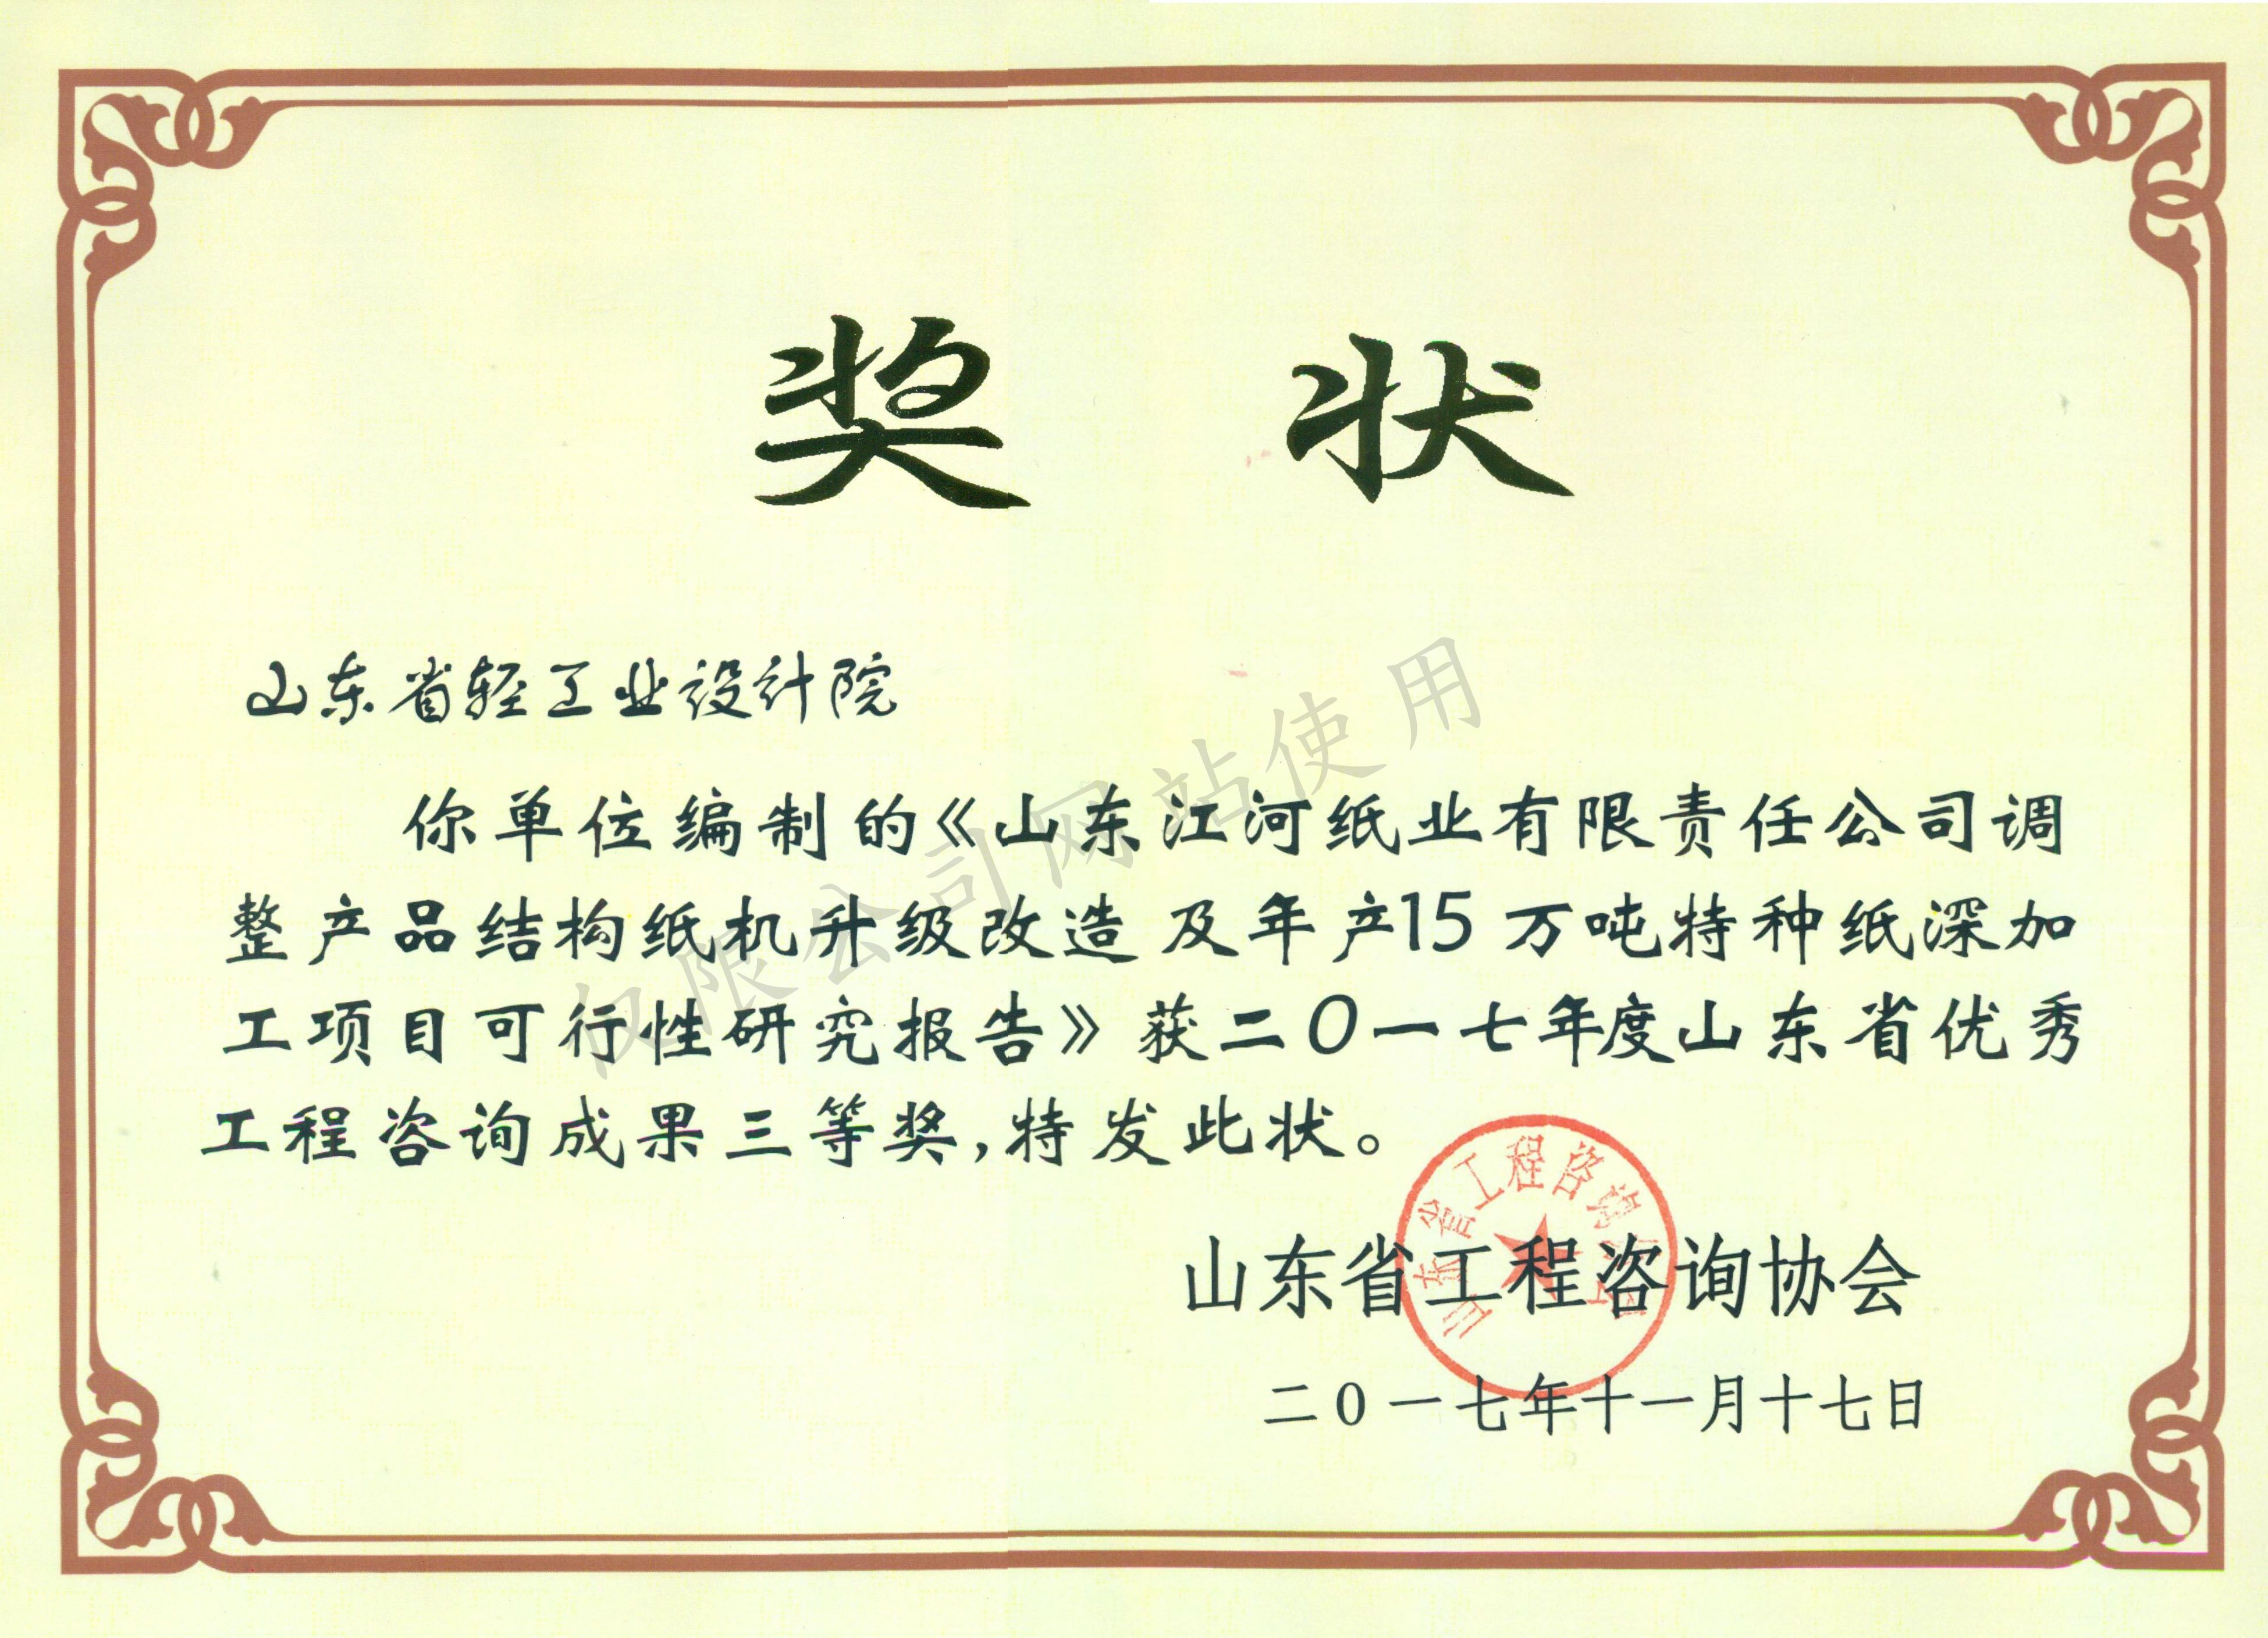 奖状
山东省轻工业设计院
你单位编制的《山东江河纸业有限责任公司调
整产品结构纸机升级改造及年产15万吨特种纸深加
工项目可行性研究报告》获二〇一七年度山东省优秀
工程咨询成果三等奖,特发此状。
山东省工程咨询协会
二〇一七年十一月十七日
仅限公司网站使用
山东省工程咨询协会